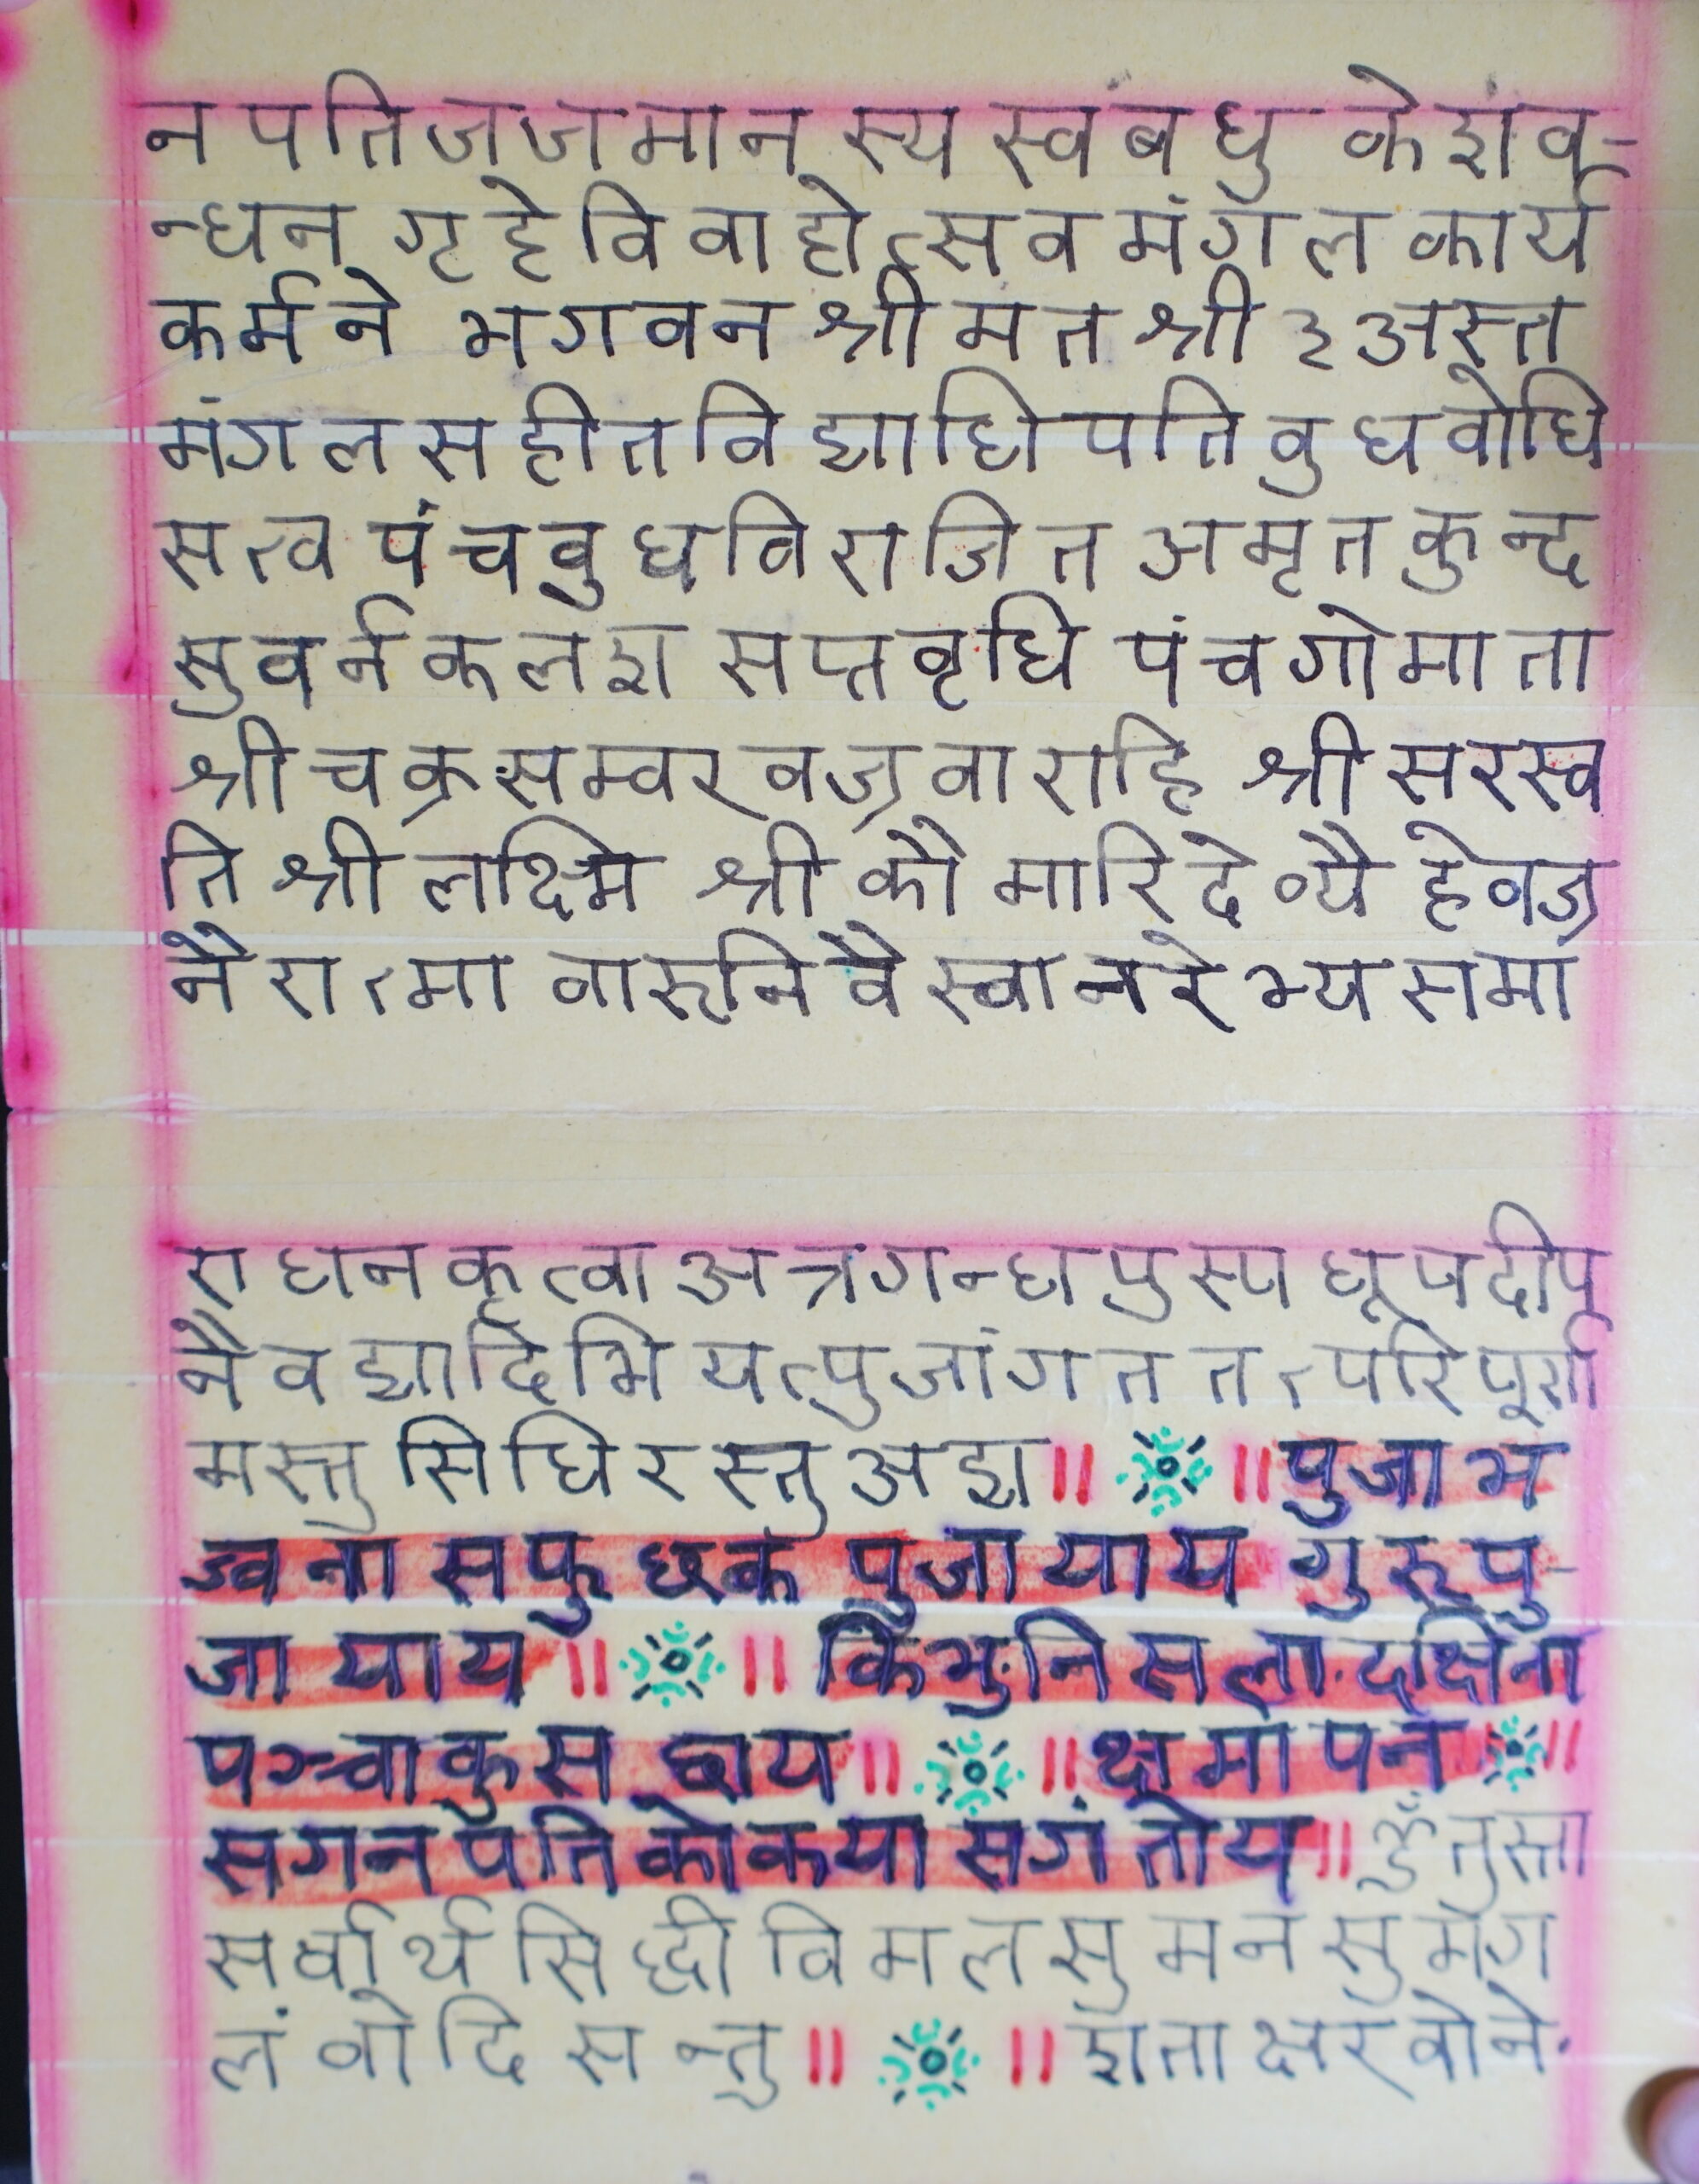 नपतिजजमानस्य स्वबंधु केशंव-
न्धन गृहे विवाहोत्सव मंगल कार्य
कर्मने भगवन श्रीमत श्री ३ अस्त
मंगल सहीत विद्याधिपति वुध वोधि
सत्व पंचवुध विराजित अमृत कुन्द
सुवर्न कलश सप्तवृधि पंचगोमाता
श्रीचक्रसम्वर वज्रवाराहि श्री सरस्व
ति श्री लक्ष्मि श्री कौमारि देव्यै हेवज्र
नैरात्मा वारुनि वैस्वानरेभ्य समा
राधन कृत्वा अत्रगन्ध पुस्प धूप दीप
नैवद्यादिभि यत्पुजांगत तत्परिपूर्ण
मस्तु सिधिरस्तु अद्य ॥ ॥ पुजाभ
ज्वना सफु छक पुजायाय गुरुपु-
जा याय ॥ ॥ किंभुनि सला दक्षिना
पञ्चाकुस छाय ॥ ॥ क्षमापन ॥
सगनपति कोकया सगं तोय ॥ ॐ तुस्ता
सर्वार्थ सिद्धी विमल सुमन सुमंग
लं वोदिसन्तु ॥ ॥ शताक्षर वोने.